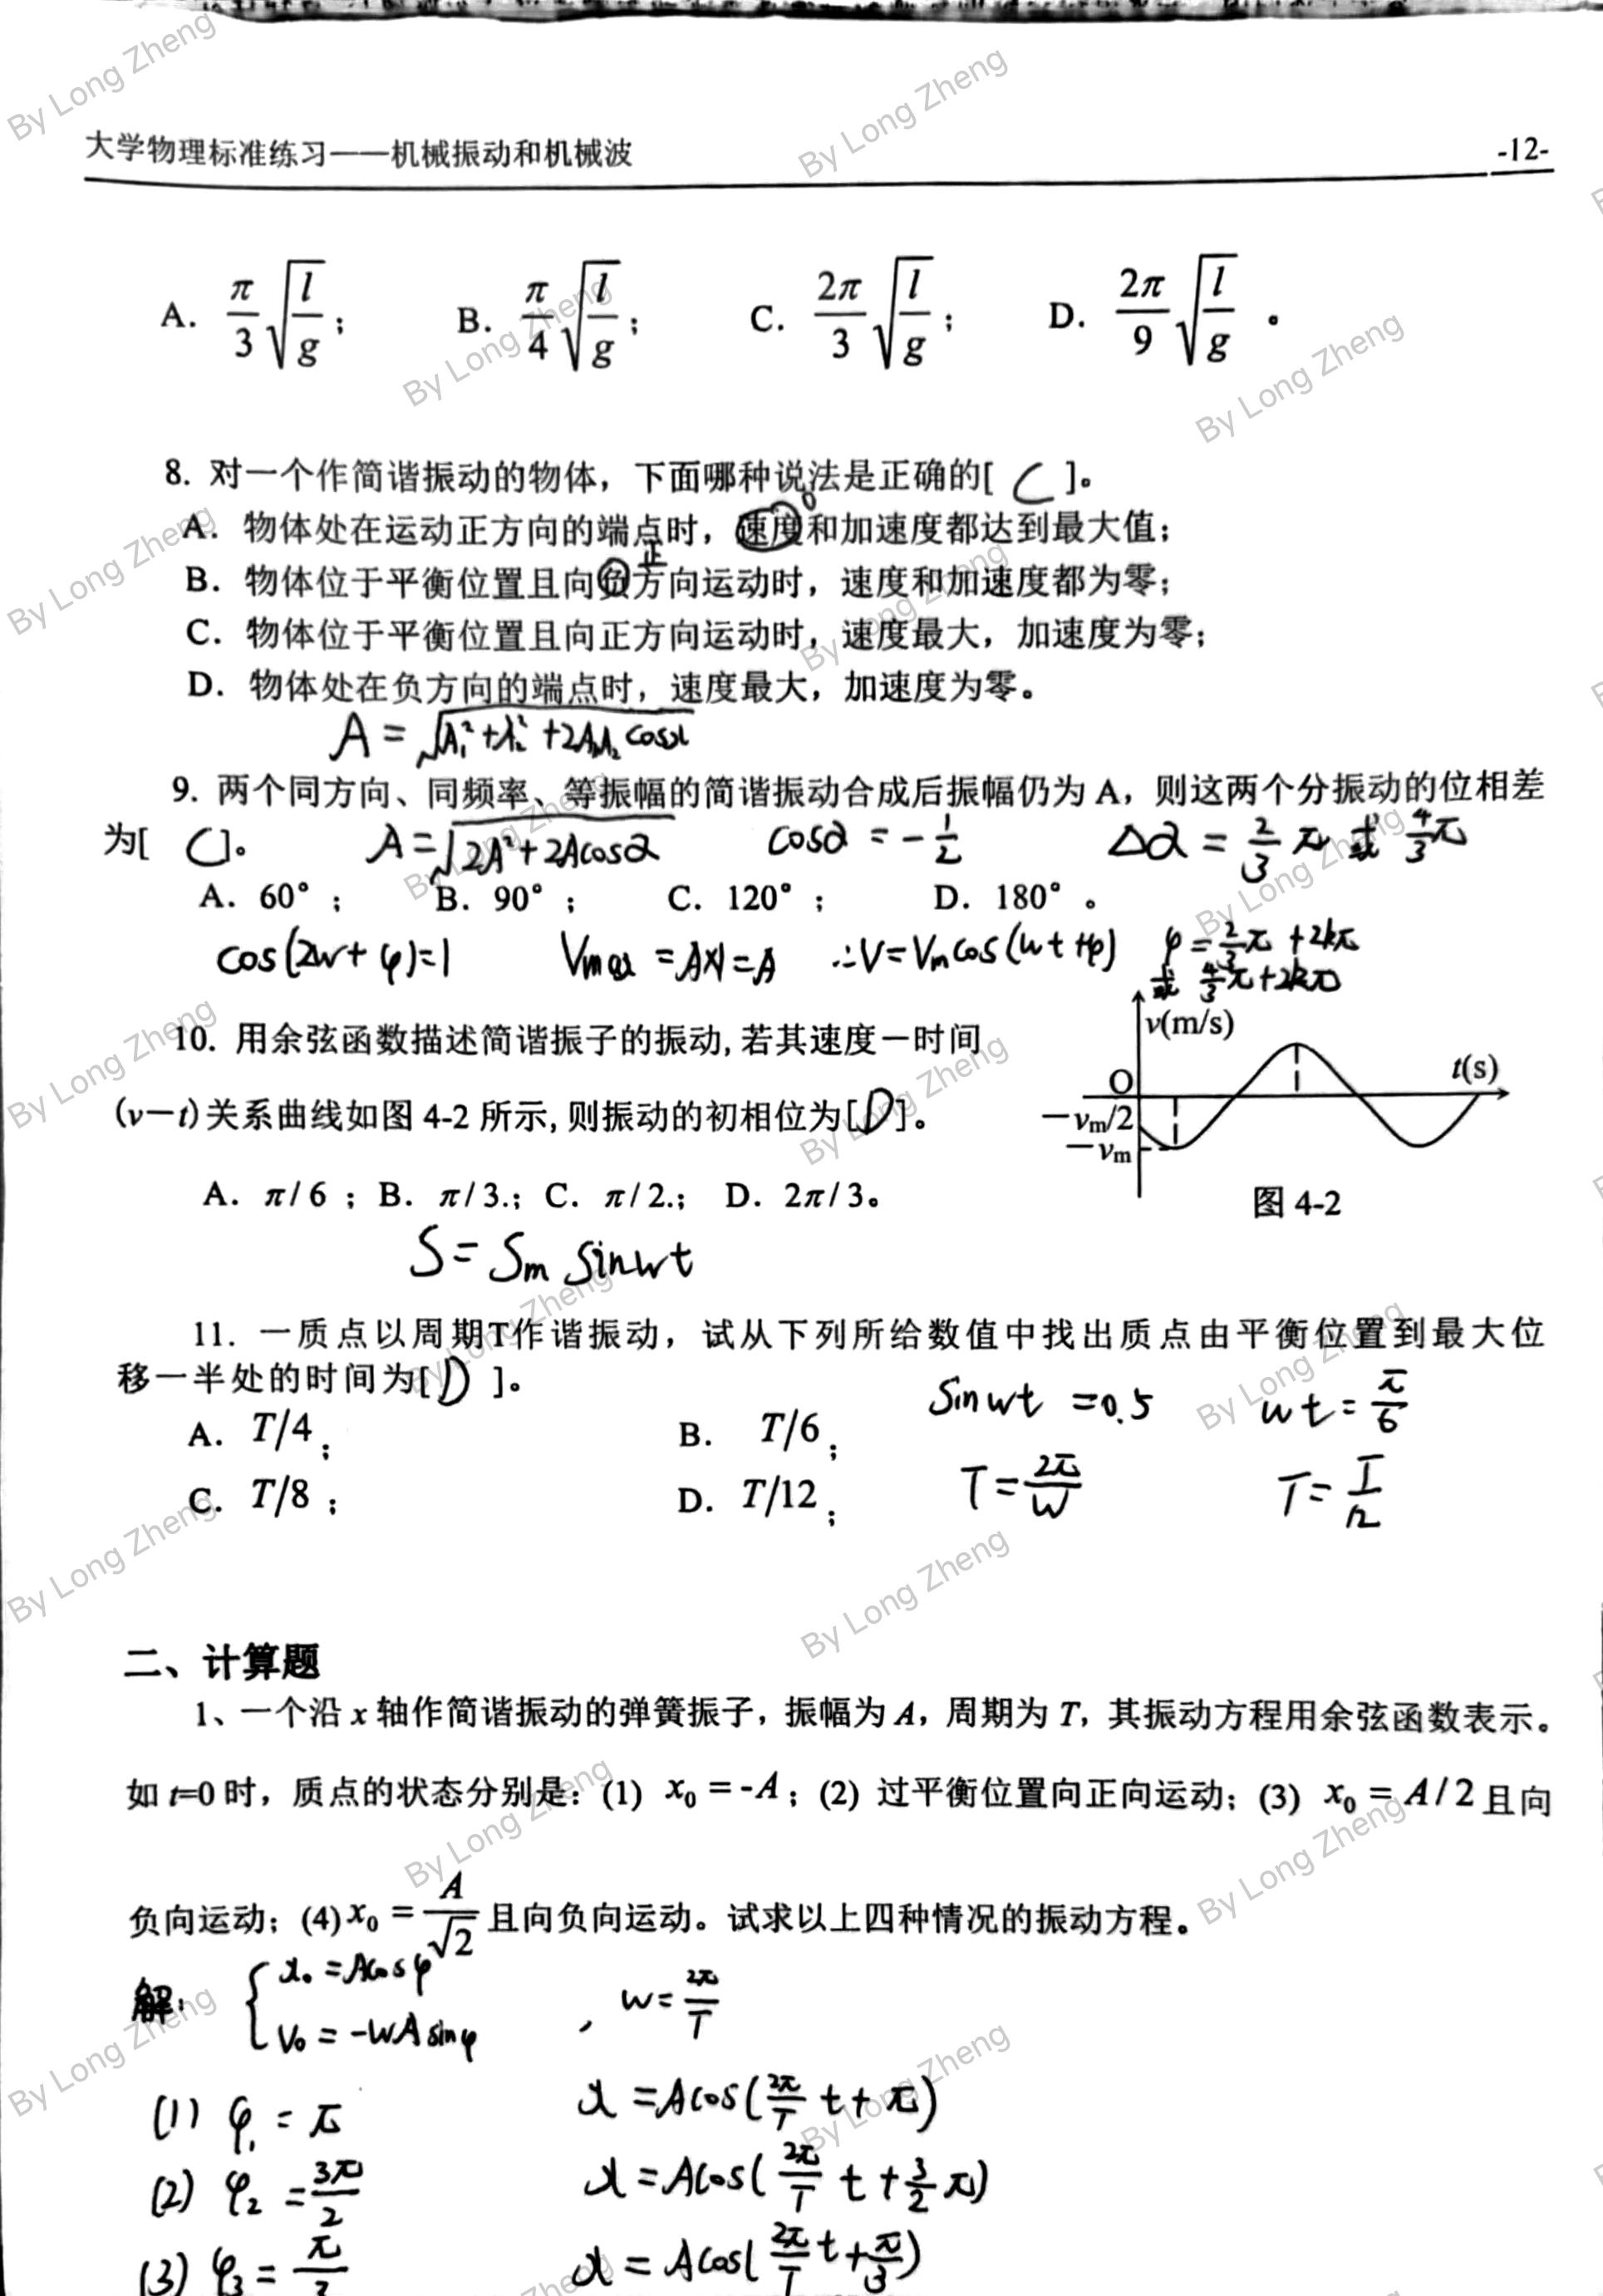 大学物理标准练习——机械振动和机械波 -12-
A. π/3 √(l/g) ; B. π/4 √(l/g) ; C. 2π/3 √(l/g) ; D. 2π/9 √(l/g) 。
8. 对一个作简谐振动的物体，下面哪种说法是正确的[ C ]。
0
A. 物体处在运动正方向的端点时，速度和加速度都达到最大值；
正
B. 物体位于平衡位置且向负方向运动时，速度和加速度都为零；
C. 物体位于平衡位置且向正方向运动时，速度最大，加速度为零；
D. 物体处在负方向的端点时，速度最大，加速度为零。
A = √(A₁² + A₂² + 2A₁A₂ cosα)
9. 两个同方向、同频率、等振幅的简谐振动合成后振幅仍为 A，则这两个分振动的位相差
为[ C ]。 A = √(2A² + 2Acosα) cosα = -1/2 Δα = 2/3 π 或 4/3 π
A. 60° ; B. 90° ; C. 120° ; D. 180° 。
cos(2w + φ) = 1 Vmax = A×1 = A ∴V = Vm cos(wt + φ) φ = 2/3 π + 2kπ
或 4/3 π + 2kπ
10. 用余弦函数描述简谐振子的振动,若其速度—时间
(v—t)关系曲线如图 4-2 所示,则振动的初相位为[D]。
A. π/6 ; B. π/3.; C. π/2.; D. 2π/3。
v(m/s)
t(s)
O
—vm/2
—vm
图 4-2
S = Sm sinwt
11. 一质点以周期T作谐振动，试从下列所给数值中找出质点由平衡位置到最大位
移一半处的时间为[ D ]。
sinwt = 0.5 wt = π/6
A. T/4 ; B. T/6 ;
C. T/8 ; D. T/12 ;
T = 2π/w T = T/12
二、计算题
1、一个沿 x 轴作简谐振动的弹簧振子，振幅为 A，周期为 T，其振动方程用余弦函数表示。
如 t=0 时，质点的状态分别是：(1) x₀ = -A；(2) 过平衡位置向正向运动；(3) x₀ = A/2 且向
负向运动；(4) x₀ = A/√2 且向负向运动。试求以上四种情况的振动方程。
解: { x₀ = Acosφ
V₀ = -wAsinφ , w = 2π/T
(1) φ₁ = π x = Acos(2π/T t + π)
(2) φ₂ = 3π/2 x = Acos(2π/T t + 3/2 π)
(3) φ₃ = π/3 x = Acos(2π/T t + π/3)
By Long Zheng